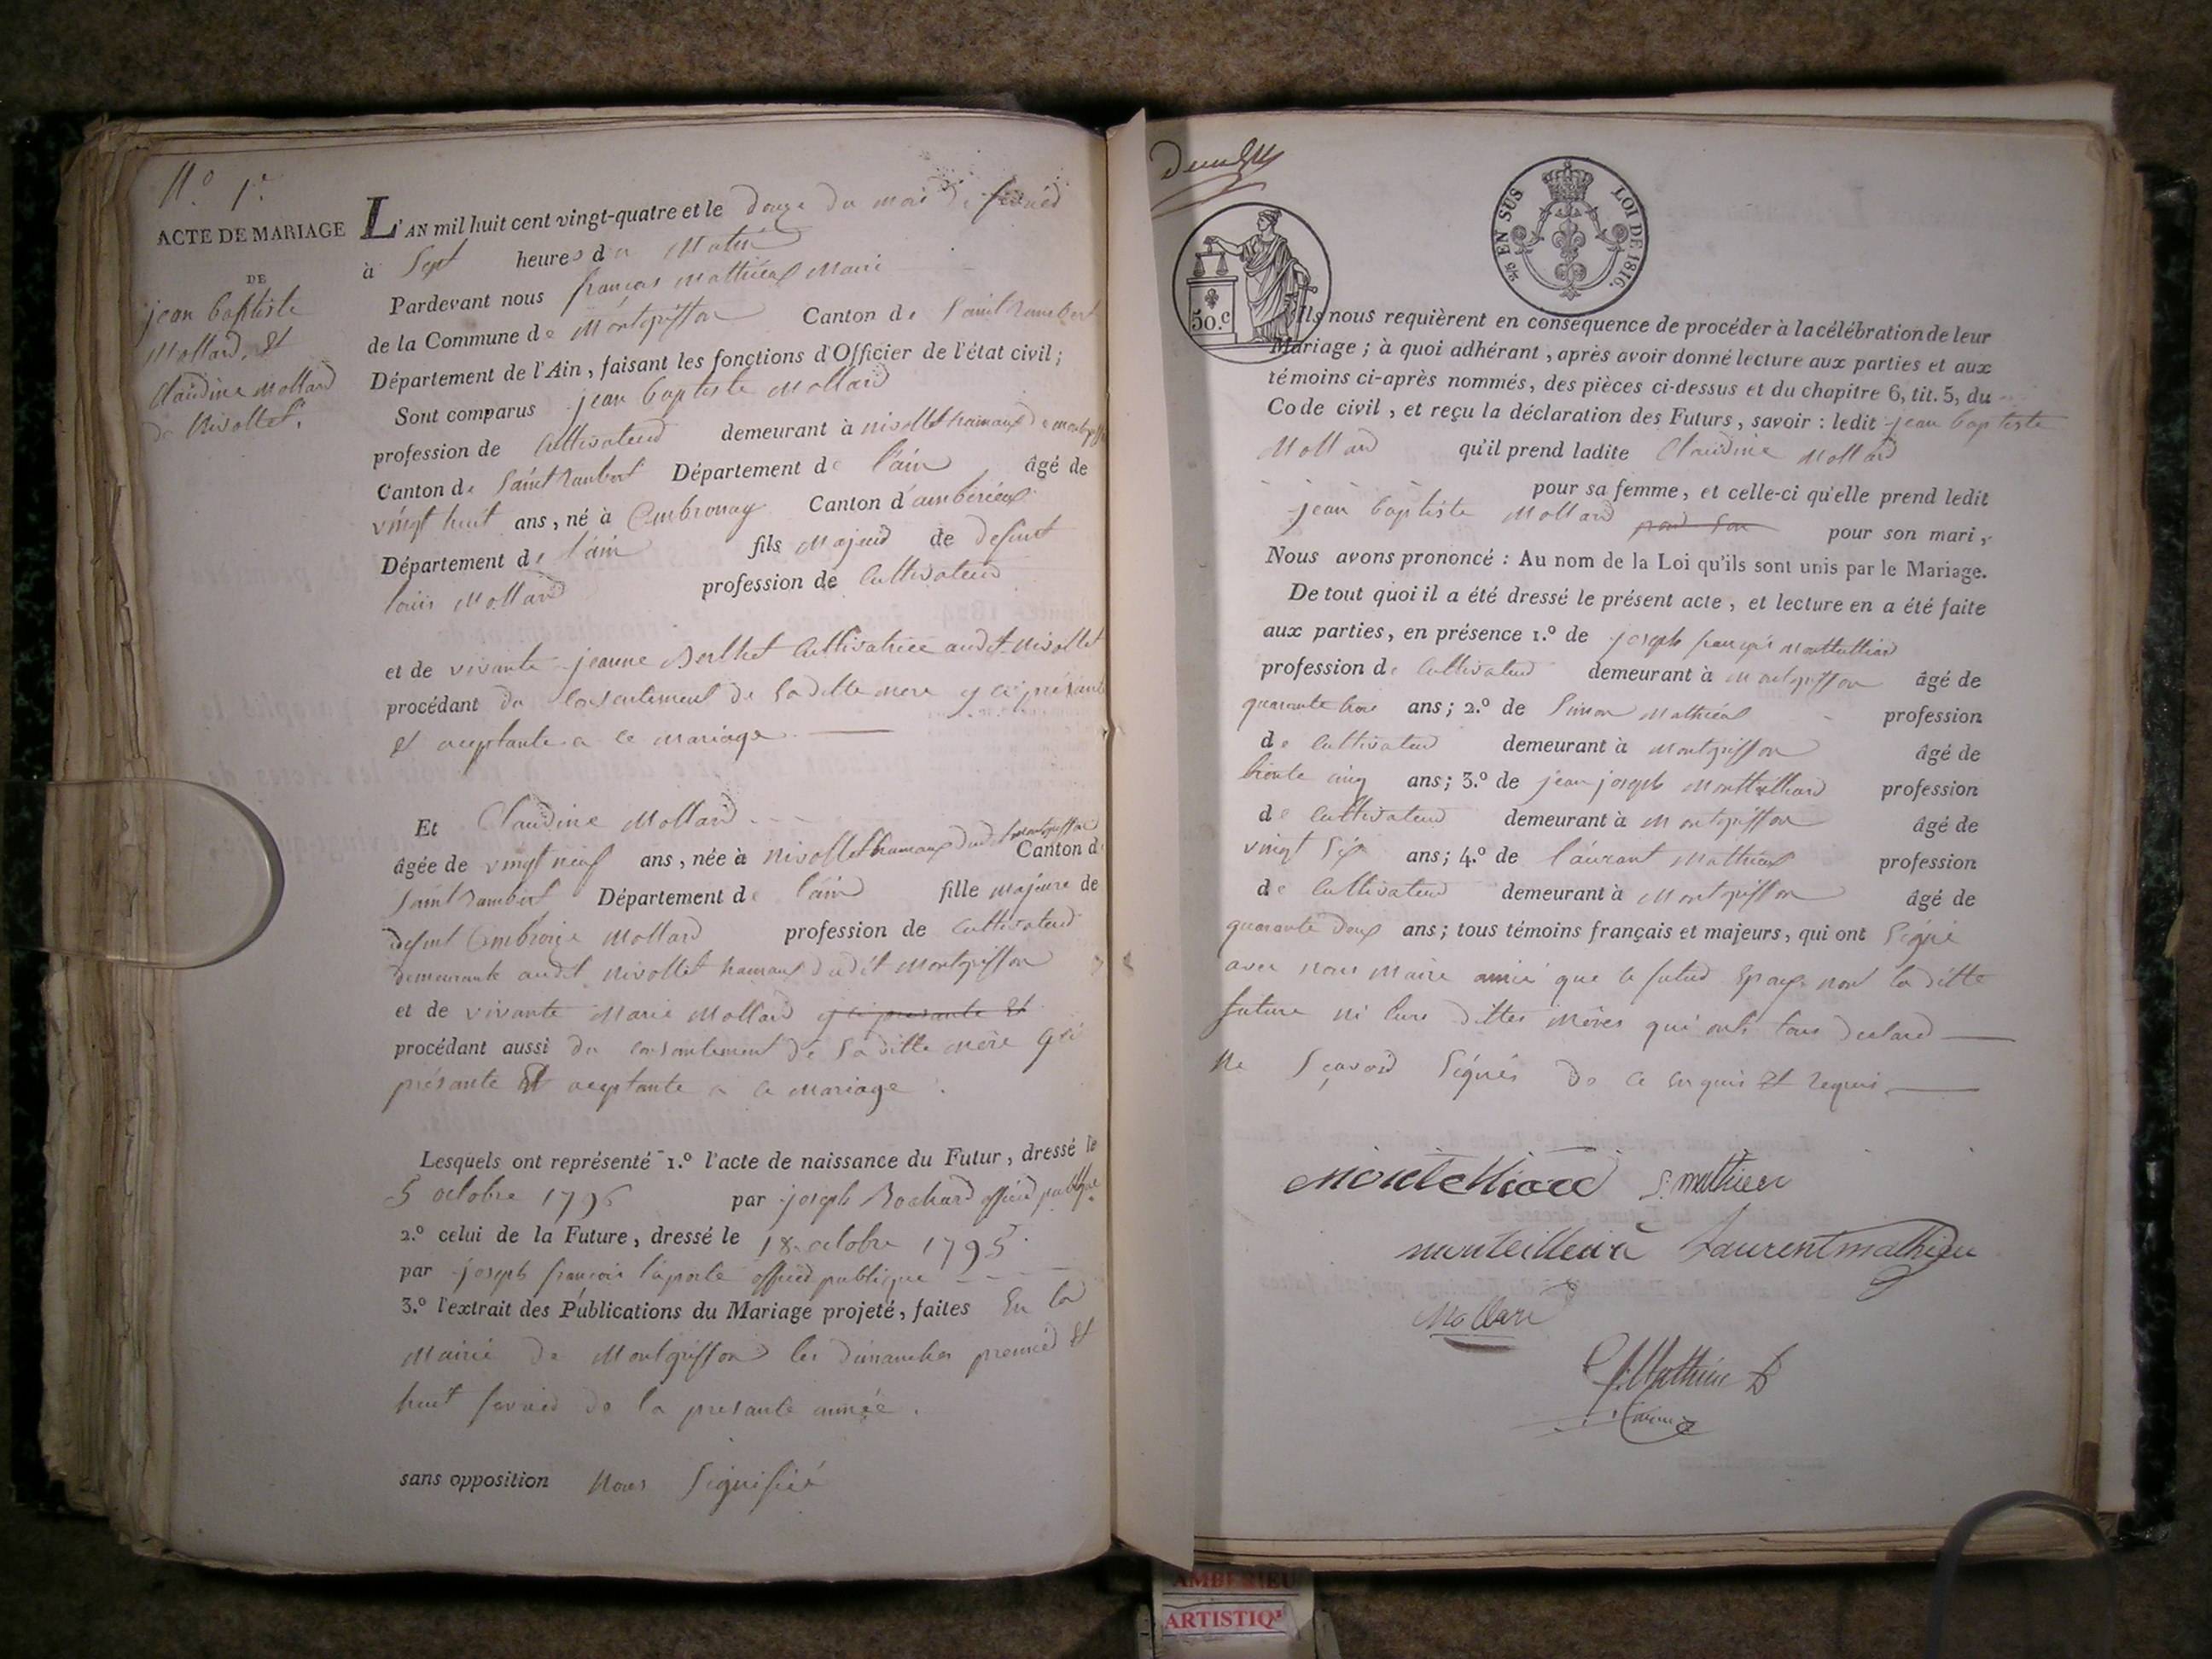 N.o 1.r
ACTE DE MARIAGE
DE
jean baptiste
Mollard, et
Claudine Mollard
de Nivollet.
L'AN mil huit cent vingt-quatre et le douze du mois de fevrier
à Sept heures du Matin
Pardevant nous françois Mathieux Maire
de la Commune de Montgriffon Canton de Saint Rambert
Département de l'Ain, faisant les fonctions d'Officier de l'état civil;
Sont comparus jean baptiste Mollard
profession de Cultivateur demeurant à nivollet hamaux de montgriffon
Canton de Saint Rambert Département de l'ain âgé de
vingt huit ans, né à Ambronay Canton d'ambérieux
Département de l'ain fils majeur de defunt
louis Mollard profession de Cultivateur
et de vivante jeanne Berthet Cultivatrice audit nivollet
procédant du Consentement de sa ditte mere y ci présante
et acceptante a ce mariage
Et Claudine Mollard
âgée de vingt neuf ans, née à nivollet hamaux dudit montgriffon Canton de
Saint Rambert Département de l'ain fille majeure de
defunt Ambroise Mollard profession de Cultivateur
demeurante audit nivollet hamaux dudit Montgriffon
et de vivante Marie Mollard y ci presante et
procédant aussi du consantement de sa ditte mère y ci
présante Et acceptante a ce mariage.
Lesquels ont représenté 1.o l'acte de naissance du Futur, dressé le
5 octobre 1796 par joseph Bochard officier publique
2.o celui de la Future, dressé le 18 octobre 1795
par joseph françois laporte officier publique
3.o l'extrait des Publications du Mariage projeté, faites En la
Mairie de Montgriffon les dimanches premier et
huit fevrier de la presante année.
sans opposition Nous Signifié
50.c
5/9 EN SUS LOI DE 1816.
Ils nous requièrent en conséquence de procéder à la célébration de leur
Mariage; à quoi adhérant, après avoir donné lecture aux parties et aux
témoins ci-après nommés, des pièces ci-dessus et du chapitre 6, tit. 5, du
Code civil, et reçu la déclaration des Futurs, savoir : ledit jean baptiste
Mollard qu'il prend ladite Claudine Mollard
pour sa femme, et celle-ci qu'elle prend ledit
jean baptiste Mollard pour son pour son mari,
Nous avons prononcé : Au nom de la Loi qu'ils sont unis par le Mariage.
De tout quoi il a été dressé le présent acte, et lecture en a été faite
aux parties, en présence 1.o de joseph françois Montillard
profession de Cultivateur demeurant à Montgriffon âgé de
quarante trois ans; 2.o de Simon Mathieux profession
de Cultivateur demeurant à Montgriffon âgé de
trente cinq ans; 3.o de jean joseph Monteilliard profession
de Cultivateur demeurant à Montgriffon âgé de
vingt Six ans; 4.o de laurant Mathieux profession
de Cultivateur demeurant à Montgriffon âgé de
quarante deux ans; tous témoins français et majeurs, qui ont Signé
avec nous maire ainsi que le futur Epoux non la ditte
future ni leurs dittes mères qui ont tous declaré
Ne Sçavoir Signés de ce enquis et requis
S. mathieu
Laurent mathieu
Mollard
f. Mathieu
AMBERIEU
ARTISTIQ